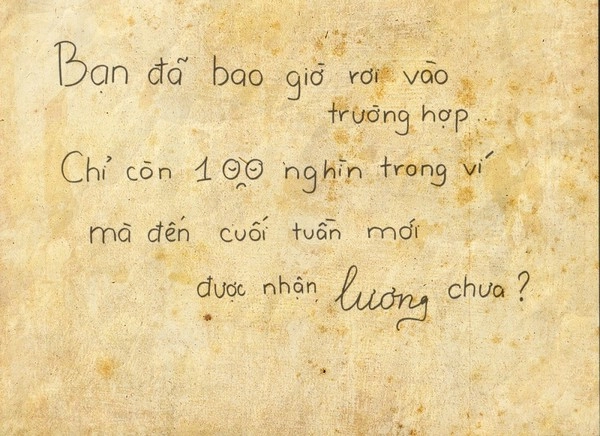 Bạn đã bao giờ rơi vào
trường hợp...
Chỉ còn 100 nghìn trong ví
mà đến cuối tuần mới
được nhận lương chưa?